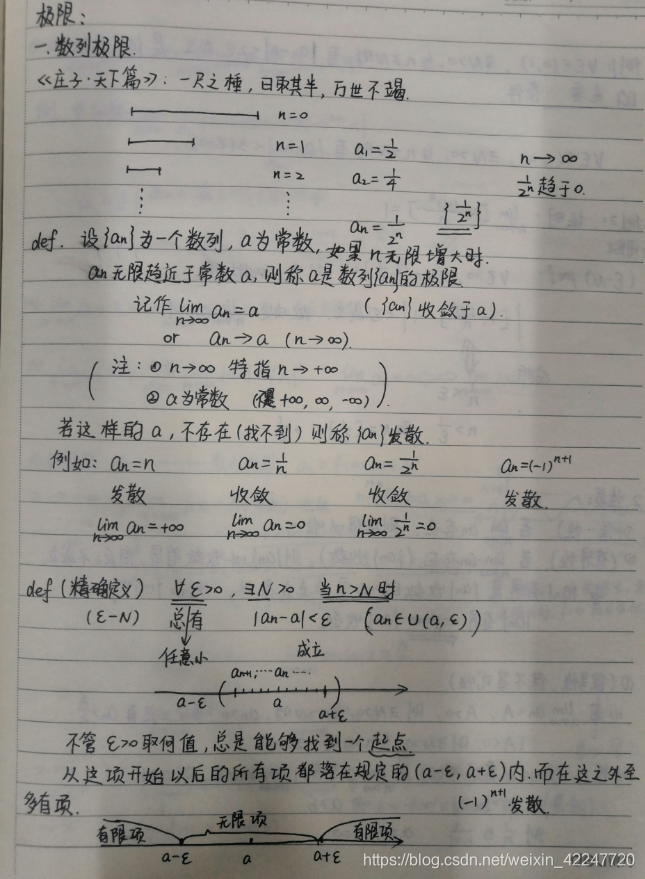 极限:
一.数列极限.
《庄子·天下篇》: 一尺之棰, 日取其半, 万世不竭.
n=0
n=1 a₁=1/2 n→∞
n=2 a₂=1/4 1/2ⁿ趋于0.
⋮ ⋮ aₙ=1/2ⁿ {1/2ⁿ}
def. 设{an}为一个数列, a为常数, 如果n无限增大时.
an无限趋近于常数a, 则称a是数列{an}的极限
记作 lim n→∞ an=a ({an}收敛于a).
or an→a (n→∞).
(注: ① n→∞ 特指n→+∞
② a为常数 ( +∞, ∞, -∞) ).
若这样的a, 不存在(找不到)则称{an}发散.
例如: an=n an=1/n an=1/2ⁿ an=(-1)ⁿ⁺¹
发散 收敛 收敛 发散.
lim n→∞ an=+∞ lim n→∞ an=0 lim n→∞ 1/2ⁿ=0
def (精确定义) ∀ε>0, ∃N>0, 当n>N时
(ε-N) 总有 |an-a|<ε (an∈U(a,ε))
任意小 成立
aₙ₊₁,…an…
a-ε a a+ε
不管ε>0取何值, 总是能够找到一个起点.
从这项开始以后的所有项都落在规定的(a-ε, a+ε)内. 而在这之外至
多有项. (-1)ⁿ⁺¹发散.
有限项 无限项 有限项
a-ε a a+ε
https://blog.csdn.net/weixin_42247720